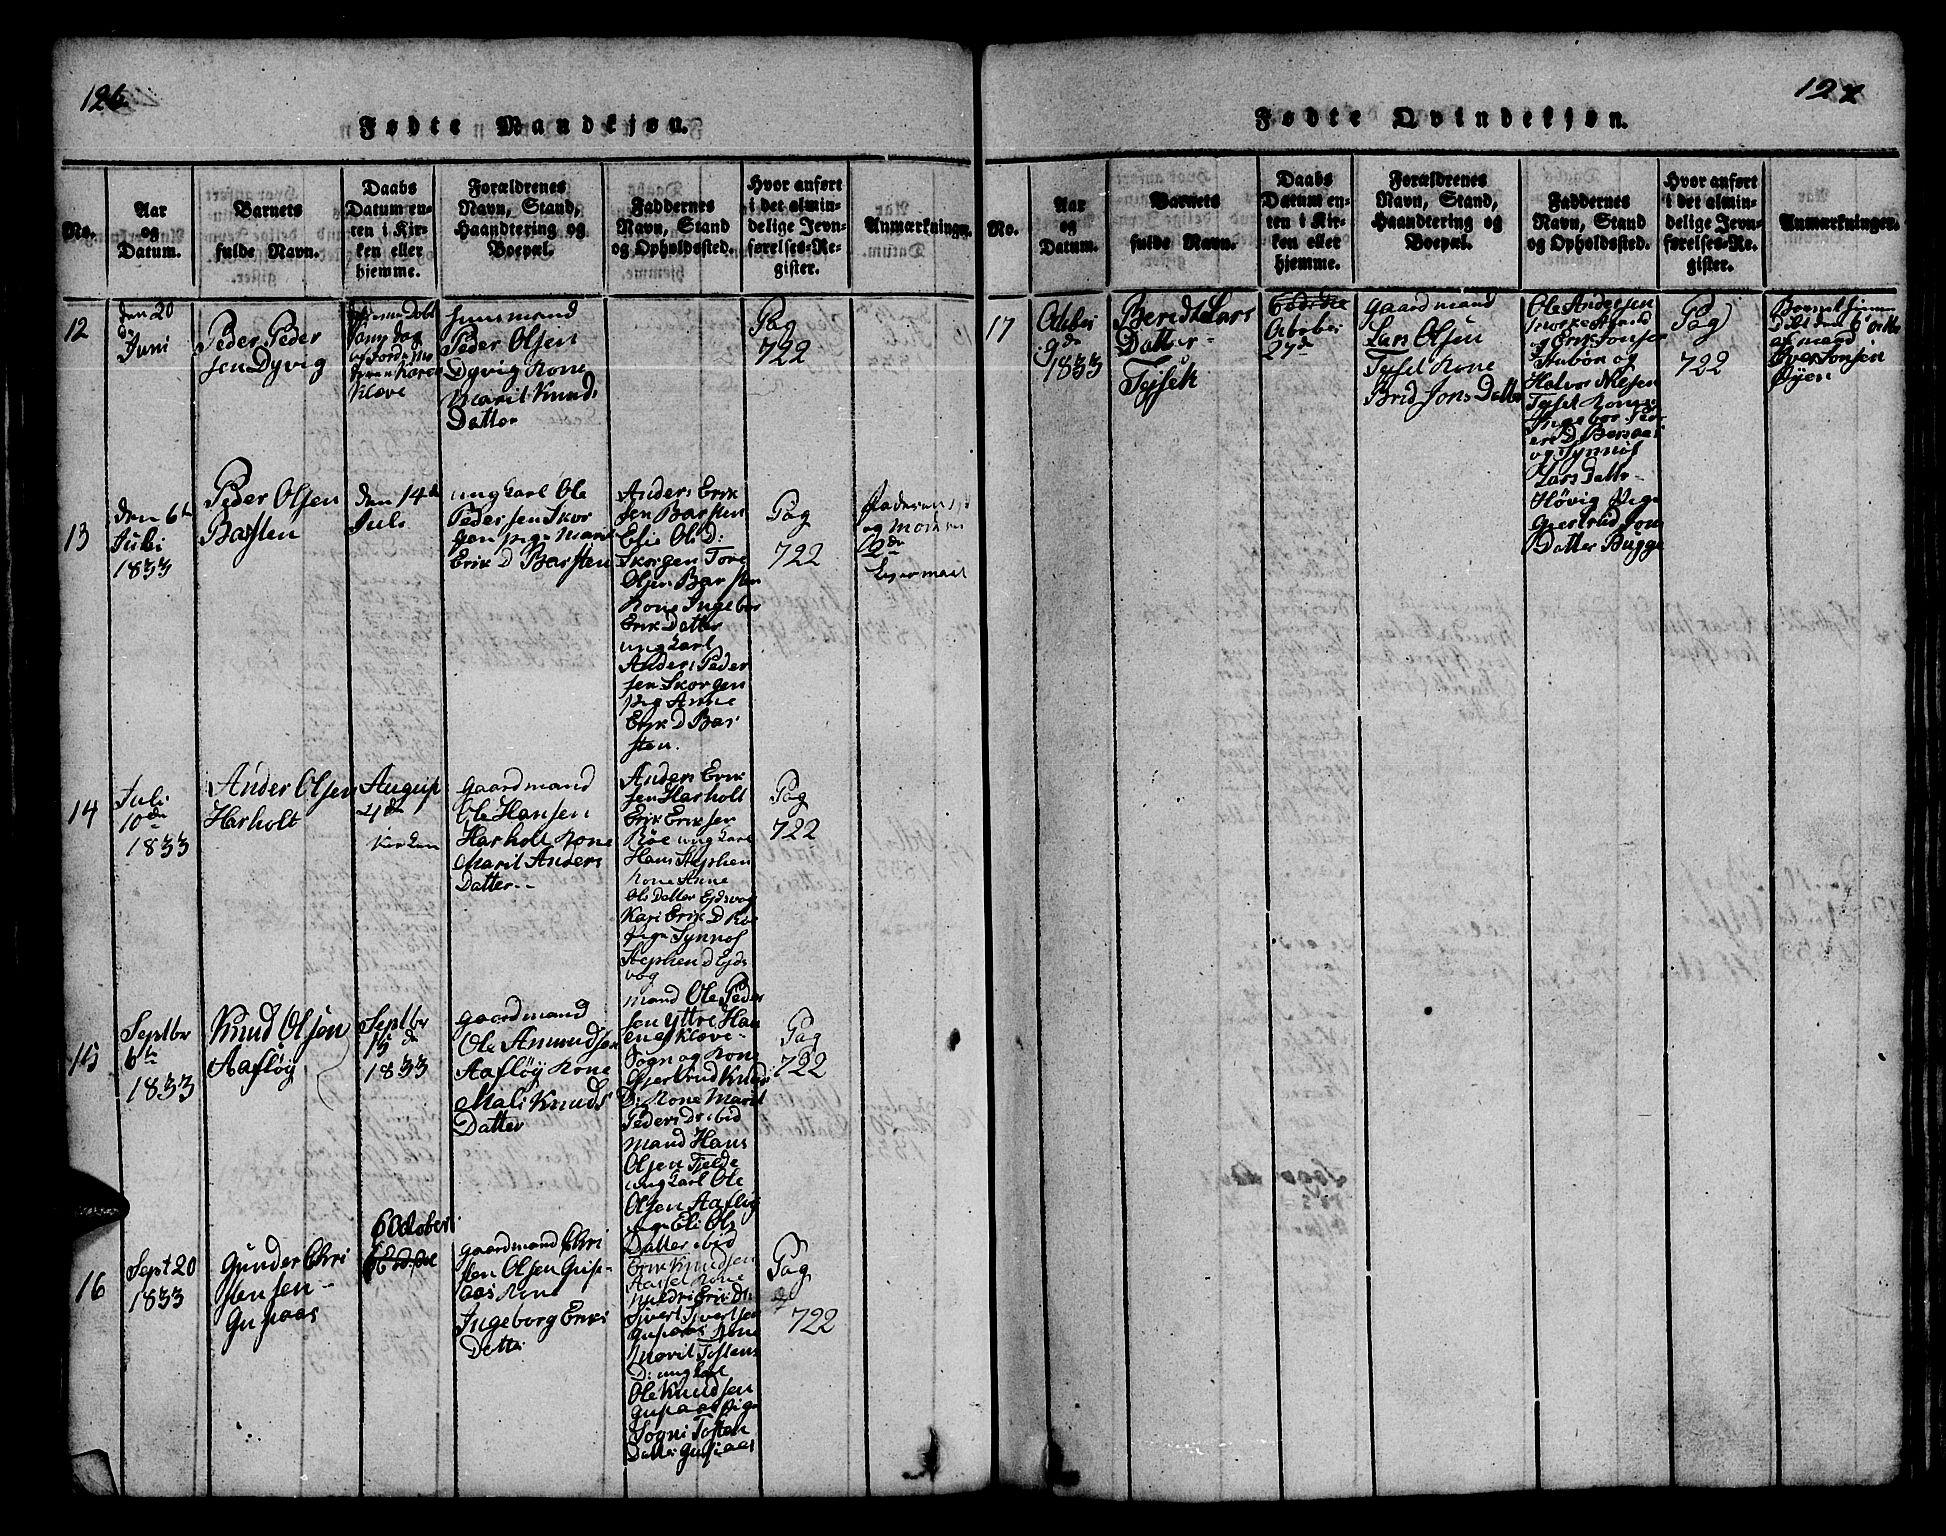 126.
Fødte Mandkjøn.
No.
Aar
og
Datum.
Barnets
fulde Navn.
Daabs
Datum en-
ten i Kir-
ken eller
hjemme.
Forældrenes
Navn, Stand,
Haandtering og
Boepæl.
Faddernes
Navn, Stand
og Opholdssted.
Hvor anført
i det almin-
delige Jevn-
førelses-Re-
gister.
Anmærkninger.
12
den 20
Juni
Peder Peder
sen Dyvig
Klæve
Huusmand
Peder Olsen
Dyvig Kone
Marit Knuds
Datter
Pag
722
13
den 6te
Juli
1833
Peder Olsen
Barsten
den 14de
Juli
ungkarl Ole
Peder sen Skor
gen pige Marit
Erik D Barsten
Anders Erik
sen Barsten
Eli Ols D:
Skorgen Tore
Olsen Barsten
Kone Ingebor
Erik Datter
ungkarl
Anders Peder
sen Skorgen
pig Anne
Erik D Bar
sten.
Pag
722
Faderens
og Moderen
2de
Leiermaal
14
Juli
10de
1833
Ander Olsen
Harholt
August
4de
Kirken
Gaardmand
Ole Hansen
Harholt Kone
Marit Anders
Datter
Anders Erik
sen Harholt
Erik Eriksen
Röe ungkarl
Hans Stephen
Kone Anne
Ols Datter Ejdsvog
Kari Erik D Röe
pige Synnof
Stephen D Ejds
vog
Pag
722
15
Septbr
6te
1833
Knud Olsen
Aafløy
Septbr
15de
1833
Gaardmand
Ole Amundsen
Aafløy Kone
Mali Knuds
Datter
mand Ole Peder
sen Yttre Han
Klæve
Sogn og Kone
Gjertrud Knuds
D: Kone Marit
Peders D: ibid
mand Hans
Olsen Tjelde
ungkarl Ole
Olsen Aafløy
pige Eli Ols
Datter ibid
Pag
722
16
Sept 20
1833
Gunder Chri
stensen
Gusiaas
6 October
Gaardmand Chri
sten Olsen Gusi-
aas Kone
Ingeborg Eriks
Datter
Erik Knudsen
Kone
Erik D:
Sivert Sivertsen
Gusiaas Kone
Marit Tostens
D: ungkarl
Ole Knudsen
Gusiaas Pige
Sogni Tosten
Datter Gusiaas
Pag
722
127
Fødte Qvindekjøn.
No.
Aar
og
Datum.
Barnets
fulde Navn.
Daabs
Datum en-
ten i Kir-
ken eller
hjemme.
Forældrenes
Navn, Stand,
Haandtering og
Boepæl.
Faddernes
Navn, Stand
og Opholdssted.
Hvor anført
i det almin-
delige Jevn-
førelses-Re-
gister.
Anmærkninger.
17
9de
1833
Beridt Lars
Datter
27de
Gaardmand
Lars Olsen
Kone
Brid Jons Datter
Ole Andersen
og Erik Jonsen
og
Halvor Nilsen
Kone
Ingebor Peder
og Synnof
Lars Datter
Høvig Pige
Gjertrud Jons
Datter Bugge
Pag
722
døbt den 6 Octbr
af mand
Iver Jonsen
Øyen